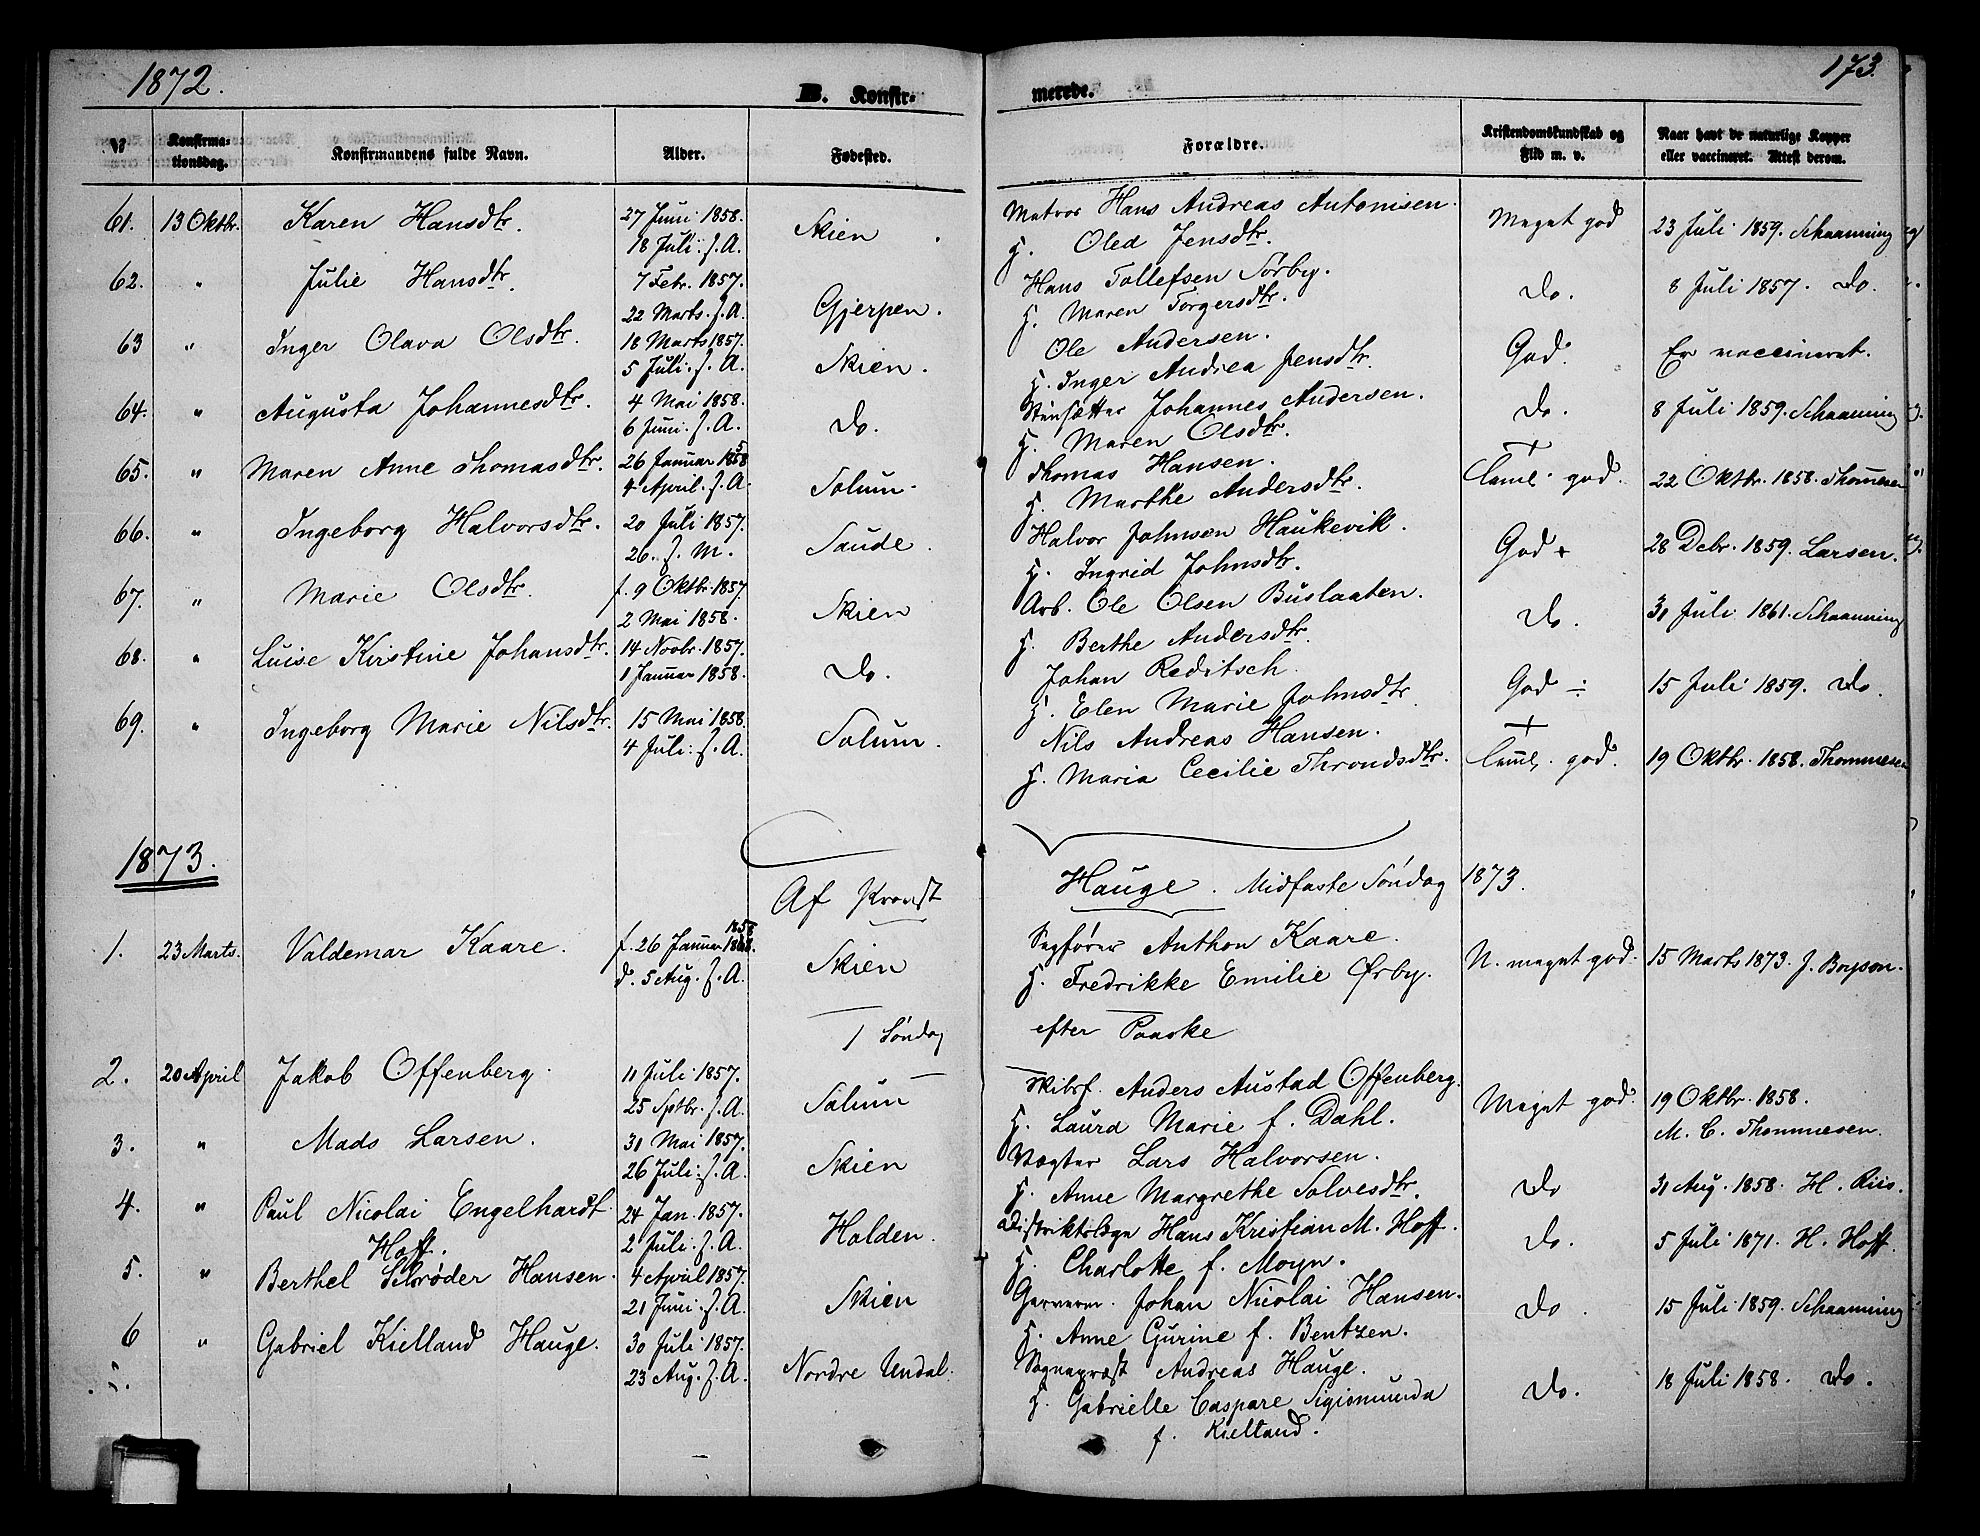 1872.
B. Konfir-
merede.
173.
№
Konfirma-
tionsdag.
Konfirmandens fulde Navn.
Alder.
Fødested.
Forældre.
Kristendomskundskab og
Flid m. v.
Naar havt de naturlige Kopper
eller vaccineret. Attest derom.
61. 13 Oktbr. Karen Hansdtr. 27 Juni 1858. Skien Matros Hans Andreas Antonisen. Meget god 23 Juli 1859. Schaanning
18 Juli s. A. H. Olea Jensdtr.
62. " Julie Hansdtr. 7 Febr. 1857. Gjerpen. Hans Tollefsen Sørby. Do. 8 Juli 1857. Do.
22 Marts. s. A. H. Maren Torgersdtr.
63 " Inger Olava Olsdtr. 18 Marts 1857. Skien. Ole Andersen. God. Er vaccineret.
5 Juli. s. A. H. Inger Andrea Jensdtr.
64. " Augusta Johannesdtr. 4 Mai 1858. Do. Stensætter Johannes Andersen. Do. 8 Juli 1859. Schaanning
6 Juni. s. A. H. Maren Olsdtr.
65. " Maren Anne Thomasdtr. 26 Januar 1858 Solum. Thomas Hansen. Taml. god. + 22 Oktbr. 1858. Thommesen
4 April. s. A. H. Marthe Andersdtr.
66. " Ingeborg Halvorsdtr. 20 Juli 1857. Saude. Halvor Johnsen Haukevik. God + 28 Debr. 1859. Larsen.
26. s. M. H. Ingrid Johnsdtr.
67. " Marie Olsdtr. f. 9 Oktbr. 1857. Skien Arb. Ole Olsen Buslaaten. Do. 31 Juli 1861. Schaanning
2 Mai 1858. H. Berthe Andersdtr.
68. " Luise Kirstine Johansdtr. 14 Novbr. 1857. Do. Johan Reditsch. God ÷ 15 Juli 1859. Do.
1 Januar 1858. H. Elen Marie Johnsdtr.
69. " Ingeborg Marie Nilsdtr. 15 Mai 1858. Solum. Nils Andreas Hansen. Taml. god. + 19 Oktbr. 1858. Thommesen
4 Juli. s. A. H. Maria Cecilie Throndsdtr.
1873.
Af Provst Hauge. Midfaste Søndag 1873.
1. 23 Marts. Valdemar Kaare. f. 26 Januar 1858. Skien Sagfører Anthon Kaare. N. meget god. 15 Marts 1873. J. Boyson.
d. 5 Aug. s. A. H. Fredrikke Emilie Ørby.
1 Søndag efter Paaske
2. 20 April Jakob Offenberg. 11 Juli 1857. Solum Skibsf. Anders Austad Offenberg. Meget god. 19 Oktbr. 1858.
25 Sptbr. s. A. H. Laura Marie f. Dahl. M. C. Thommesen.
3. " Mads Larsen. 31 Mai 1857. Skien Vægter Lars Halvorsen. Do 31 Aug. 1858. H. Riis.
26 Juli. s. A. H. Anne Margrethe Solvesdtr.
4. " Paul Nicolai Engelhardt 24 Jan. 1857. Holden. Distriktslæge Hans Kristian M. Hoff. Do. 5 Juli 1871. H. Hoff.
Hoff. 2 Juli. s. A. H. Charlotte f. Moyn.
5. " Berthel Schrøder Hansen. 4 April 1857. Skien Garverm. Johan Nicolai Hansen. Do. 15 Juli 1859. Schaanning
21 Juni. s. A. H. Anne Gurine f. Bentzen.
6 " Gabriel Kielland Hauge. 30 Juli 1857. Nordre Undal. Sognepræst Andreas Hauge. Do. 18 Juli 1858. Do.
23 Aug. s. A. H. Gabrielle Caspare Sigismunda
f. Kielland.